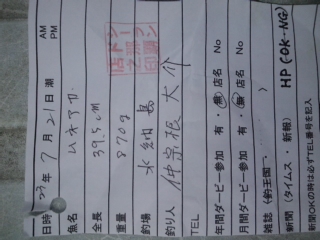 日時 23年 7月 21日 潮 AM PM
魚名 ムネアカ
全長 39.5cm
重量 870g
釣場 水納島
釣り人 仲宗根 大介
TEL
年間ダービー参加 有・無 店名 No
月間ダービー参加 有・無 店名 No
雑誌(釣王国・
新聞(タイムス・新報) HP(OK・NG)
新聞OKの時は必ずTEL番号を記入
シーランド